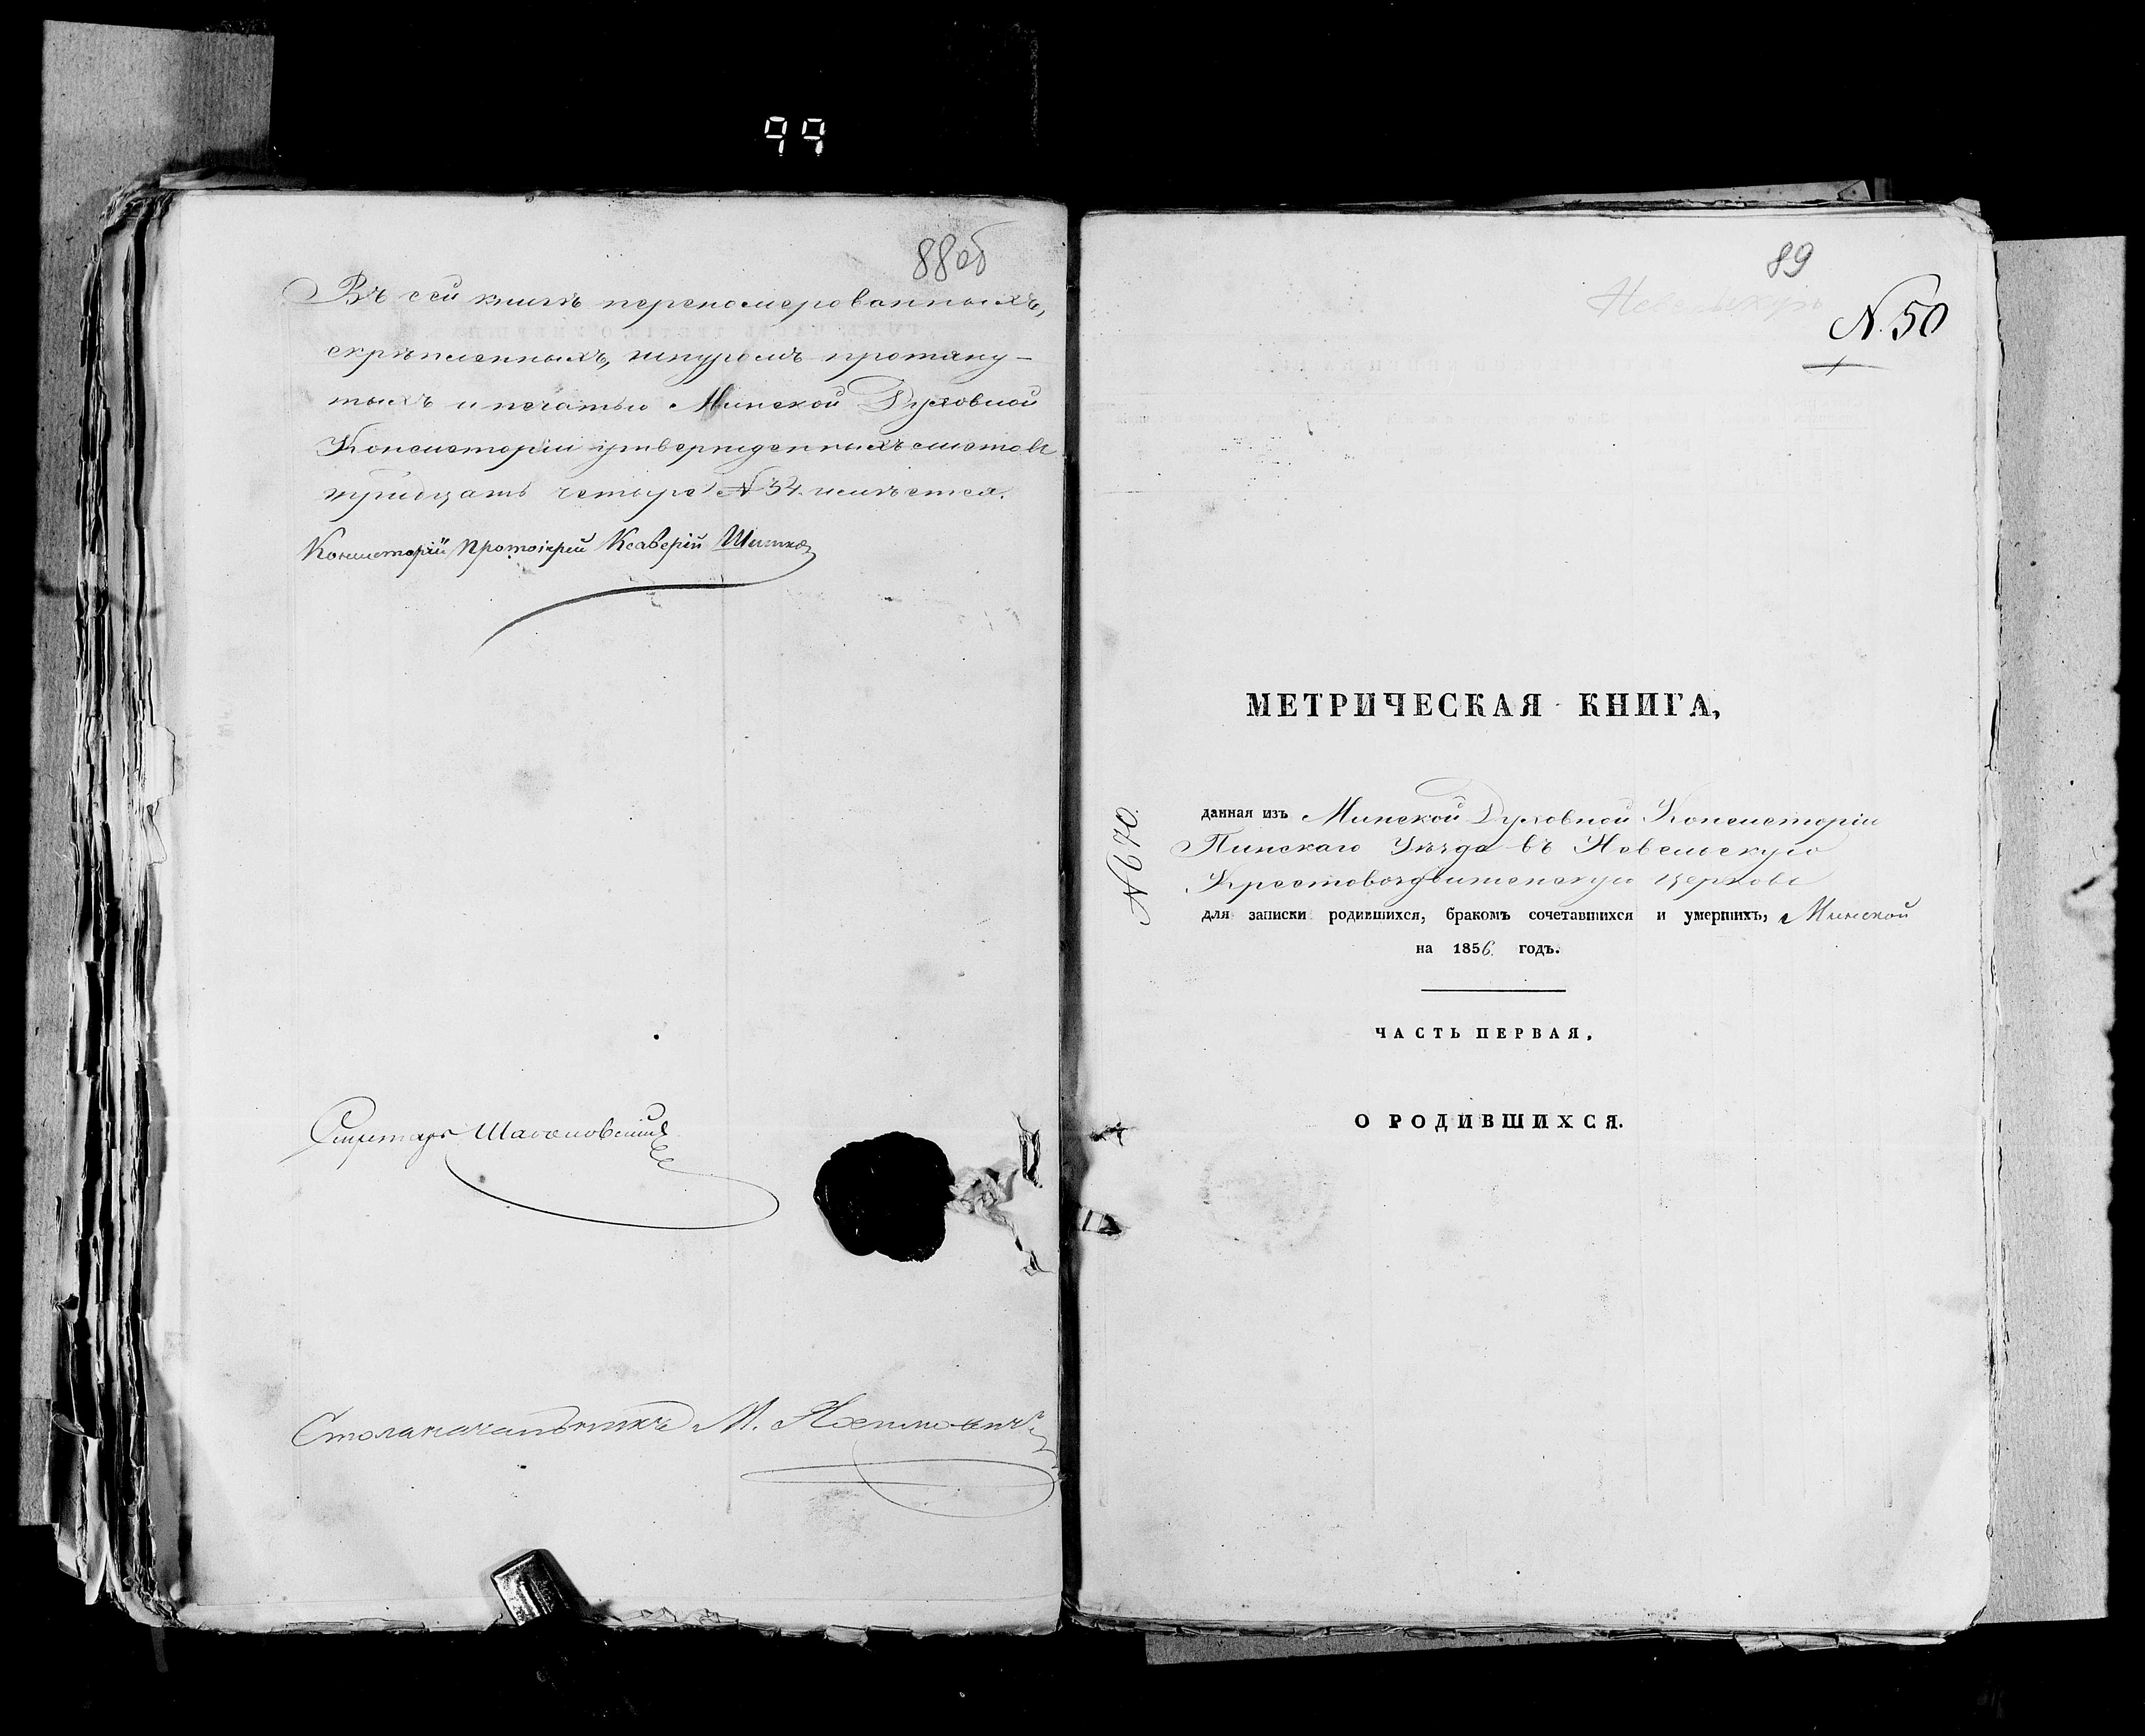 99
88 об
Въ сей книгѣ перепомерованныхъ,
скрѣпленныхъ, шнуромъ протяну-
тыхъ и печатью Минской Духовной
Консисторіи утвержденныхъ листовъ
тридцать четыре № 34. имѣется.
Консисторіи Протоіерей Ксаверій
Секретарь
Столоначальникъ М.
89
N. 50
МЕТРИЧЕСКАЯ КНИГА,
N 670.
данная изъ Минской Духовной Консисторіи
Пинскаго Уѣзда въ Невельскую
Крестовоздвиженскую церковь
для записки родившихся, бракомъ сочетавшихся и умершихъ, Минской
на 1856 годъ.
ЧАСТЬ ПЕРВАЯ.
О РОДИВШИХСЯ.